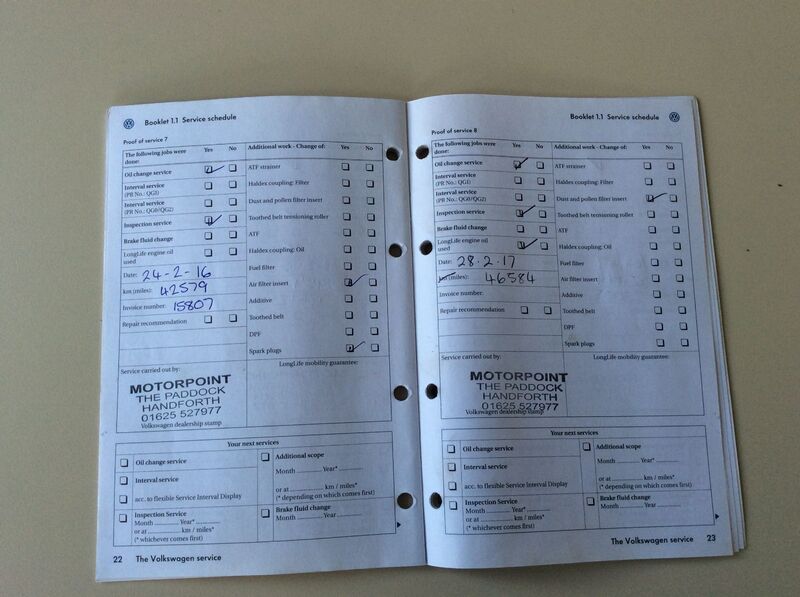 Booklet 1.1 Service schedule
Proof of service 7
The following jobs were done: Yes No
Additional work - Change of: Yes No
Oil change service
ATF strainer
Interval service
(PR No.: QG1)
Haldex coupling: Filter
Interval service
(PR No.: QG0/QG2)
Dust and pollen filter insert
Inspection service
Toothed belt tensioning roller
Brake fluid change
ATF
LongLife engine oil
used
Haldex coupling: Oil
Date: 24-2-16
Fuel filter
km (miles): 42579
Air filter insert
Invoice number: 15807
Additive
Repair recommendation
Toothed belt
DPF
Spark plugs
Service carried out by:
LongLife mobility guarantee:
MOTORPOINT
THE PADDOCK
HANDFORTH
01625 527977
Volkswagen dealership stamp
Your next services
Oil change service
Additional scope
Month Year*
Interval service
or at km / miles*
acc. to flexible Service Interval Display
(* depending on which comes first)
Inspection Service
Brake fluid change
Month Year*
Month Year
or at km / miles*
(* whichever comes first)
22 The Volkswagen service
Booklet 1.1 Service schedule
Proof of service 8
The following jobs were done: Yes No
Additional work - Change of: Yes No
Oil change service
ATF strainer
Interval service
(PR No.: QG1)
Haldex coupling: Filter
Interval service
(PR No.: QG0/QG2)
Dust and pollen filter insert
Inspection service
Toothed belt tensioning roller
Brake fluid change
ATF
LongLife engine oil
used
Haldex coupling: Oil
Date: 28.2.17
Fuel filter
km (miles): 46584
Air filter insert
Invoice number:
Additive
Repair recommendation
Toothed belt
DPF
Spark plugs
Service carried out by:
LongLife mobility guarantee:
MOTORPOINT
THE PADDOCK
HANDFORTH
01625 527977
Volkswagen dealership stamp
Your next services
Oil change service
Additional scope
Month Year*
Interval service
or at km / miles*
acc. to flexible Service Interval Display
(* depending on which comes first)
Inspection Service
Brake fluid change
Month Year*
Month Year
or at km / miles*
(* whichever comes first)
The Volkswagen service 23